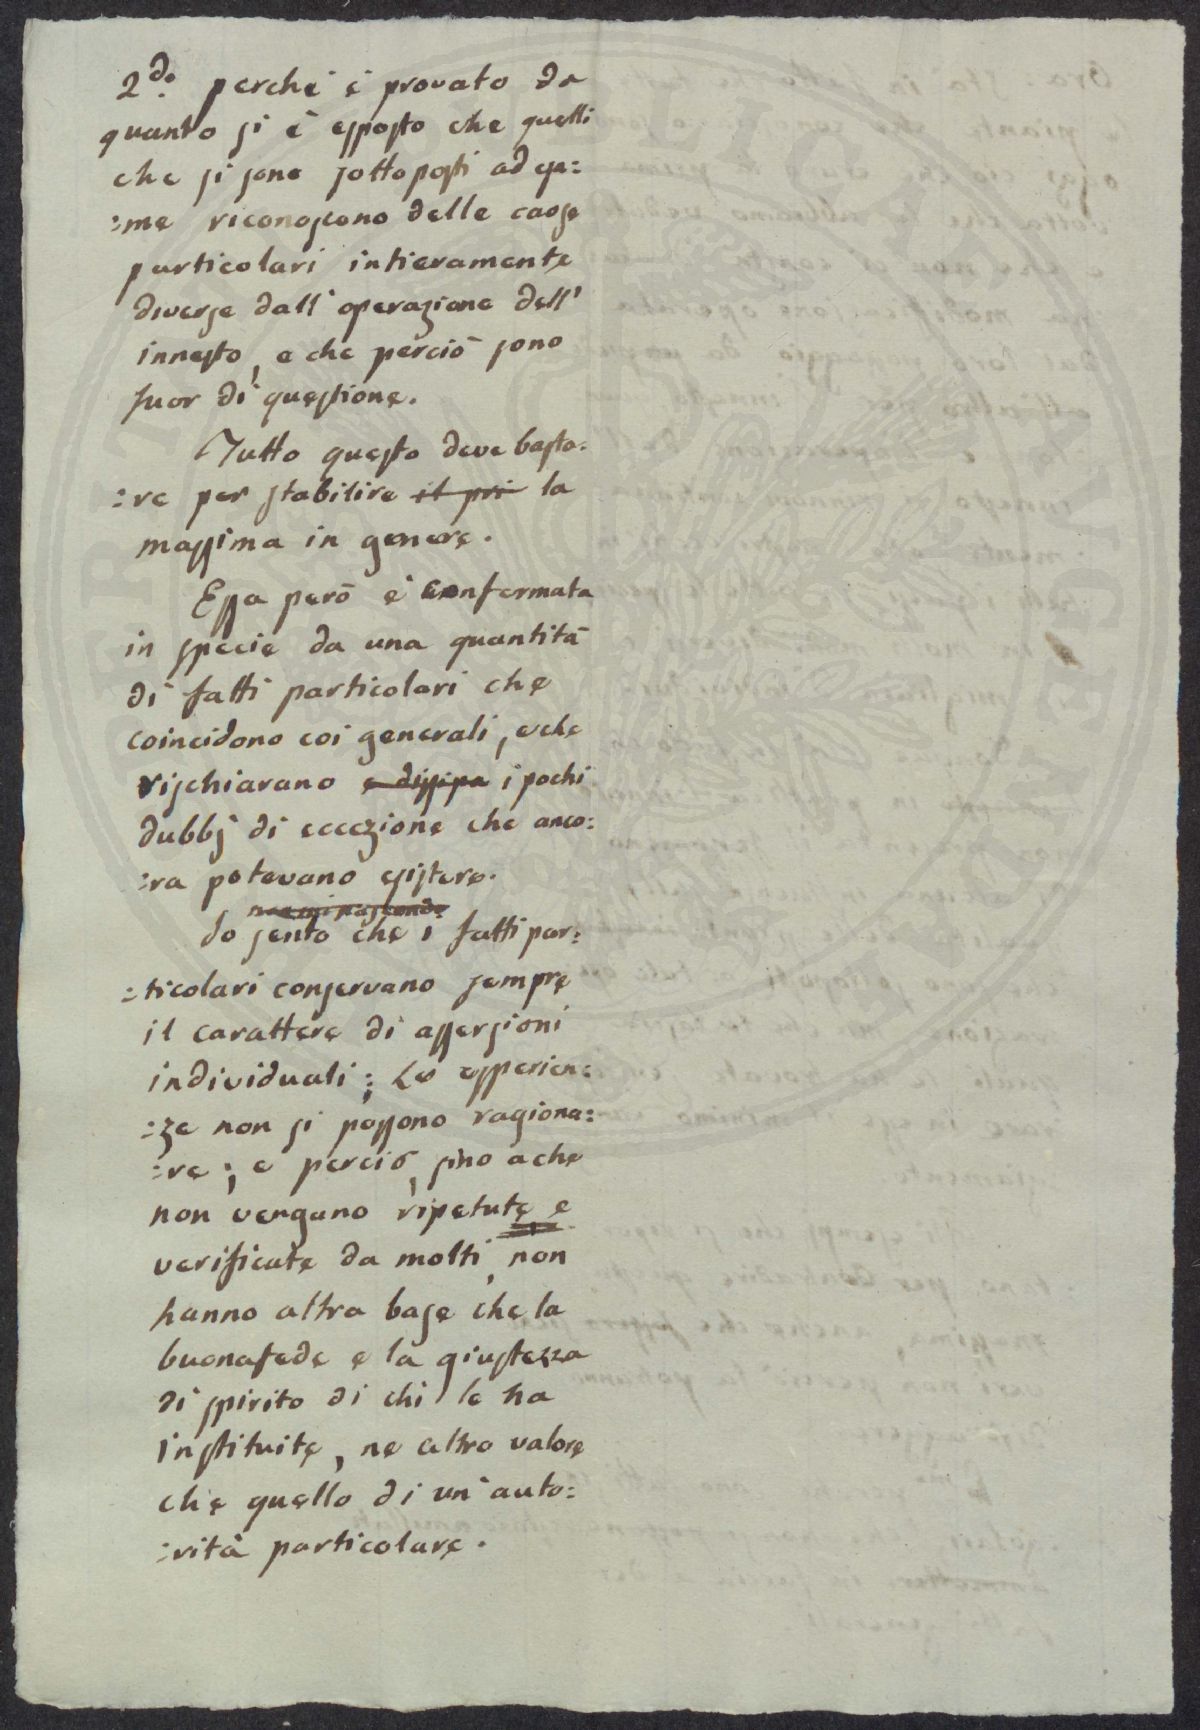 2do. perche è provato da
quanto si è esposto che quelli
che si sono sottoposti ad esa:
:me riconoscono delle cause
particolari intieramente
diverse dall'operazione dell'
innesto, e che perciò sono
fuor di questione.
Tutto questo deve basta:
:re per stabilire il pri la
massima in genere.
Essa però è confermata
in specie da una quantità
di fatti particolari che
coincidono coi generali, e che
rischiarano e dissipa i pochi
dubbj di eccezione che anco:
:ra potevano esistere.
non mi nascondo
Io sento che i fatti par:
:ticolari conservano sempre
il carattere di assersioni
individuali; Le esperien:
:ze non si possono ragiona:
:re; e perciò, sino a che
non vengano ripetute e
verificate da molti, non
hanno altra base che la
buonafede e la giustezza
di spirito di chi le ha
instituite, ne altro valore
che quello di un'auto:
:rità particolare.